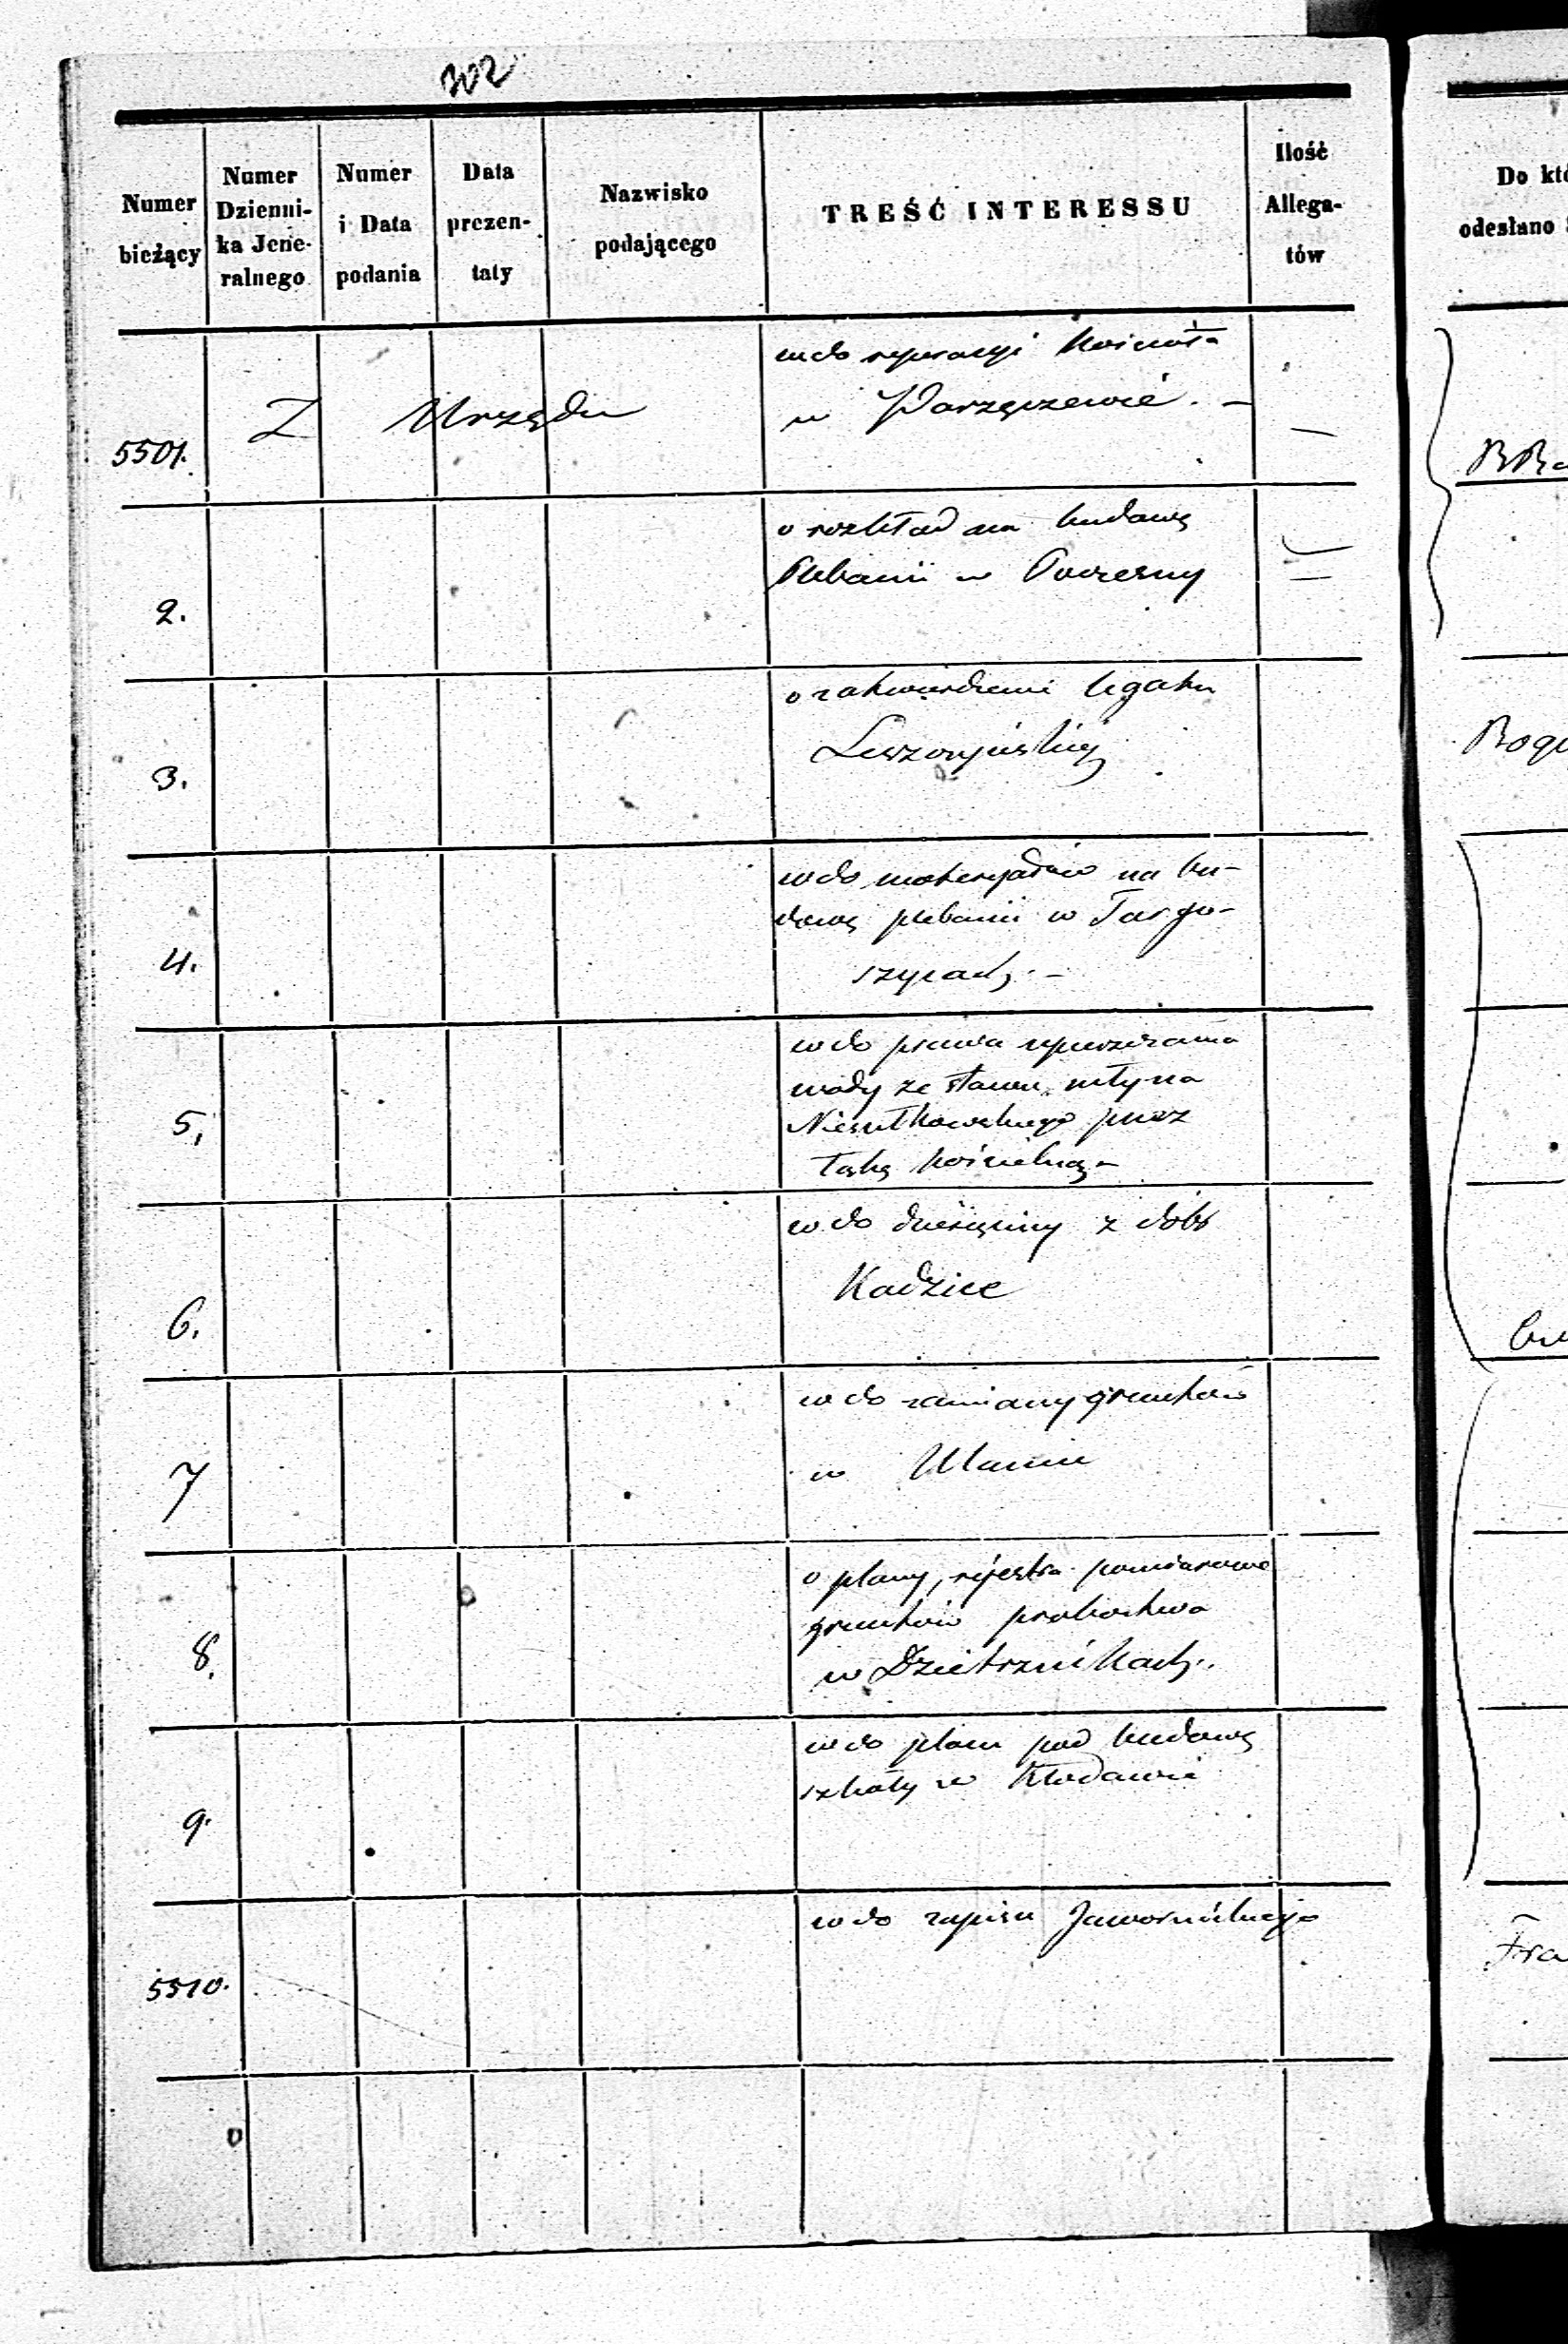 302
Numer bieżący
Numer Dzienni- ka Jene- ralnego
Numer i Data podania
Data prezen- taty
Nazwisko podającego
TREŚĆ INTERESSU
Ilość Allega- tów
Do któ
odesłano
5501.
Z Urzędu
wdo reperacyi kościoła
w Parzęczewie. –
2.
o rozkład na budowę
Plebanii w Poczesny
3.
o zatwierdzenie legatu
4.
wdo materyałów na bu-
dowę plebanii w Targo-
szycach. –
5.
wdo prawa upuszczania
wody ze stawu młyna
Niesułkowskiego przez
łąkę kościelną –
6.
wdo dziesięciny z dóbr
Kadzice
7
wdo zamiany gruntów
w
8.
o plany, rejestra pomiarowe
gruntów probostwa
w Dzietrznikach.
9.
wdo placu pod budowę
szkoły w Kłodawie
5510.
wdo zapisu Jawornickiego
Fra